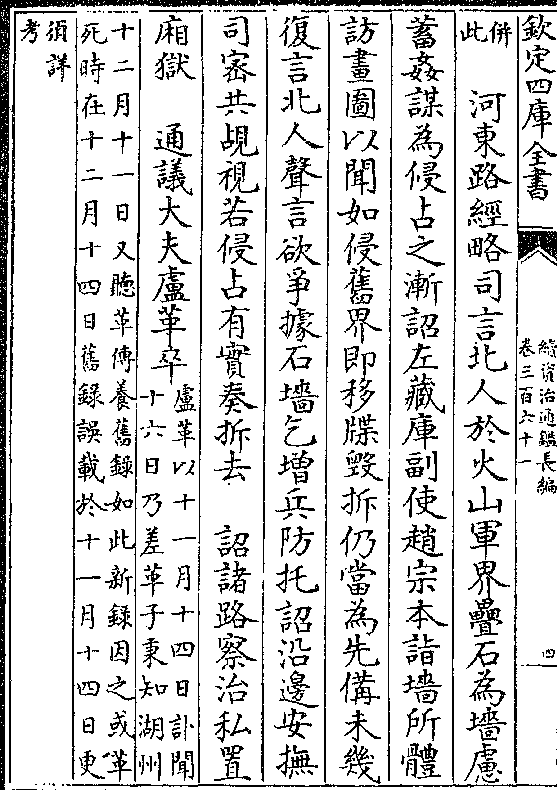 欽定四庫全書
續資治通鑑長編
卷三百六十一
四
併
此
河東路經略司言北人於火山軍界疊石為墻慮
蓄姦謀為侵占之漸詔左藏庫副使趙宗本詣墻所體
訪畫圖以聞如侵舊界即移牒毀拆仍當為先備未幾
復言北人聲言欲爭據石墻乞增兵防托詔沿邊安撫
司密共覘視若侵占有實奏拆去　詔諸路察治私置
廂獄　通議大夫盧革卒
盧革以十一月十四日訃聞
十六日乃差革子秉知湖州
十二月十一日又聽革傳養舊録如此新録因之或革
死時在十二月十四日舊録誤載於十一月十四日更
須詳
考